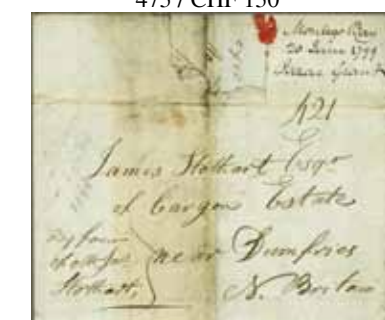 4757 CHF 150
Montego Bay
20 June 1799
Isaac Grant
421
James Stothart Esqr
of Cargen Estate
near Dumfries
Stothart,
N. Britain